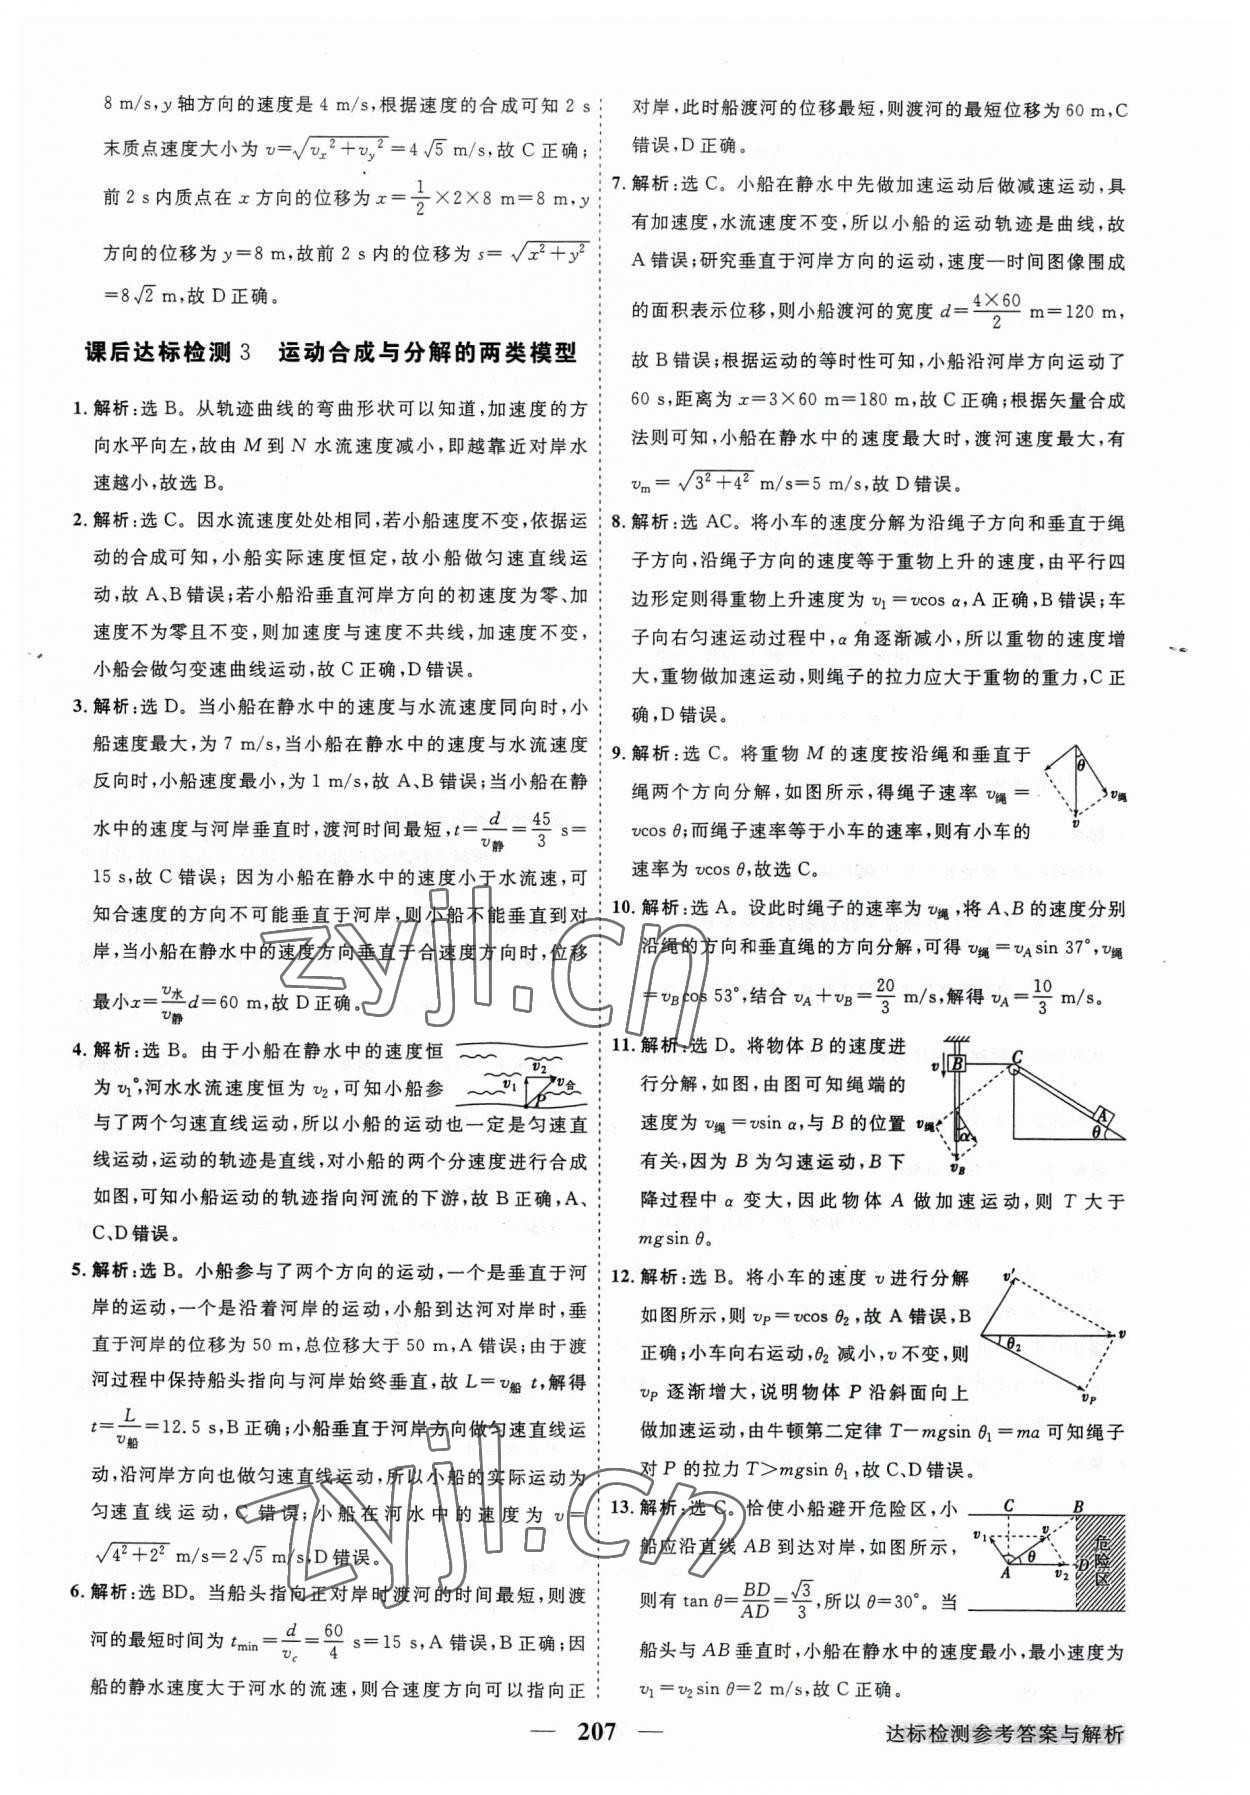 8 m/s,y 轴方向的速度是 4 m/s,根据速度的合成可知 2 s
末质点速度大小为 v=√(vₓ²+v_y²)=4√5 m/s,故 C 正确;
前 2 s 内质点在 x 方向的位移为 x=1/2×2×8 m=8 m,y
方向的位移为 y=8 m,故前 2 s 内的位移为 s=√(x²+y²)
=8√2 m,故 D 正确。
课后达标检测 3 运动合成与分解的两类模型
1. 解析:选 B。从轨迹曲线的弯曲形状可以知道,加速度的方
向水平向左,故由 M 到 N 水流速度减小,即越靠近对岸水
速越小,故选 B。
2. 解析:选 C。因水流速度处处相同,若小船速度不变,依据运
动的合成可知,小船实际速度恒定,故小船做匀速直线运
动,故 A、B 错误;若小船沿垂直河岸方向的初速度为零、加
速度不为零且不变,则加速度与速度不共线,加速度不变,
小船会做匀变速曲线运动,故 C 正确,D 错误。
3. 解析:选 D。当小船在静水中的速度与水流速度同向时,小
船速度最大,为 7 m/s,当小船在静水中的速度与水流速度
反向时,小船速度最小,为 1 m/s,故 A、B 错误;当小船在静
水中的速度与河岸垂直时,渡河时间最短,t=d/v静=45/3 s=
15 s,故 C 错误;因为小船在静水中的速度小于水流速,可
知合速度的方向不可能垂直于河岸,则小船不能垂直到对
岸,当小船在静水中的速度方向垂直于合速度方向时,位移
最小x=v水/v静 d=60 m,故 D 正确。
4. 解析:选 B。由于小船在静水中的速度恒
为 v₁,河水水流速度恒为 v₂,可知小船参
v₁ v₂ v合 P
与了两个匀速直线运动,所以小船的运动也一定是匀速直
线运动,运动的轨迹是直线,对小船的两个分速度进行合成
如图,可知小船运动的轨迹指向河流的下游,故 B 正确,A、
C、D 错误。
5. 解析:选 B。小船参与了两个方向的运动,一个是垂直于河
岸的运动,一个是沿着河岸的运动,小船到达河对岸时,垂
直于河岸的位移为 50 m,总位移大于 50 m,A 错误;由于渡
河过程中保持船头指向与河岸始终垂直,故 L=v船 t,解得
t=L/v船=12.5 s,B 正确;小船垂直于河岸方向做匀速直线运
动,沿河岸方向也做匀速直线运动,所以小船的实际运动为
匀速直线运动,C 错误;小船在河水中的速度为 v=
√(4²+2²) m/s=2√5 m/s,D 错误。
6. 解析:选 BD。当船头指向正对岸时渡河的时间最短,则渡
河的最短时间为 t_min=d/v_c=60/4 s=15 s,A 错误,B 正确;因
船的静水速度大于河水的流速,则合速度方向可以指向正
对岸,此时船渡河的位移最短,则渡河的最短位移为 60 m,C
错误,D 正确。
7. 解析:选 C。小船在静水中先做加速运动后做减速运动,具
有加速度,水流速度不变,所以小船的运动轨迹是曲线,故
A 错误;研究垂直于河岸方向的运动,速度—时间图像围成
的面积表示位移,则小船渡河的宽度 d=4×60/2 m=120 m,
故 B 错误;根据运动的等时性可知,小船沿河岸方向运动了
60 s,距离为 x=3×60 m=180 m,故 C 正确;根据矢量合成
法则可知,小船在静水中的速度最大时,渡河速度最大,有
v_m=√(3²+4²) m/s=5 m/s,故 D 错误。
8. 解析:选 AC。将小车的速度分解为沿绳子方向和垂直于绳
子方向,沿绳子方向的速度等于重物上升的速度,由平行四
边形定则得重物上升速度为 v₁=vcos α,A 正确,B 错误;车
子向右匀速运动过程中,α 角逐渐减小,所以重物的速度增
大,重物做加速运动,则绳子的拉力应大于重物的重力,C 正
确,D 错误。
9. 解析:选 C。将重物 M 的速度按沿绳和垂直于
绳两个方向分解,如图所示,得绳子速率 v绳=
vcos θ;而绳子速率等于小车的速率,则有小车的
速率为 vcos θ,故选 C。
θ v绳 v
10. 解析:选 A。设此时绳子的速率为 v绳,将 A、B 的速度分别
沿绳的方向和垂直绳的方向分解,可得 v绳=v_A sin 37°,v绳
=v_B cos 53°,结合 v_A+v_B=20/3 m/s,解得 v_A=10/3 m/s。
11. 解析:选 D。将物体 B 的速度进
行分解,如图,由图可知绳端的
速度为 v绳=vsin α,与 B 的位置
有关,因为 B 为匀速运动,B 下
v B C A θ v绳 α v_B
降过程中 α 变大,因此物体 A 做加速运动,则 T 大于
mgsin θ。
12. 解析:选 B。将小车的速度 v 进行分解
如图所示,则 v_P=vcos θ₂,故 A 错误,B
正确;小车向右运动,θ₂ 减小,v 不变,则
v_P 逐渐增大,说明物体 P 沿斜面向上
v′ v θ₂ v_P
做加速运动,由牛顿第二定律 T-mgsin θ₁=ma 可知绳子
对 P 的拉力 T>mgsin θ₁,故 C、D 错误。
13. 解析:选 C。恰使小船避开危险区,小
船应沿直线 AB 到达对岸,如图所示,
则有 tan θ=BD/AD=√3/3,所以 θ=30°。当
C B v₁ v θ A v₂ D 危险区
船头与 AB 垂直时,小船在静水中的速度最小,最小速度为
v₁=v₂sin θ=2 m/s,故 C 正确。
— 207 —
达标检测参考答案与解析
zyjl.cn
zyjl.cn